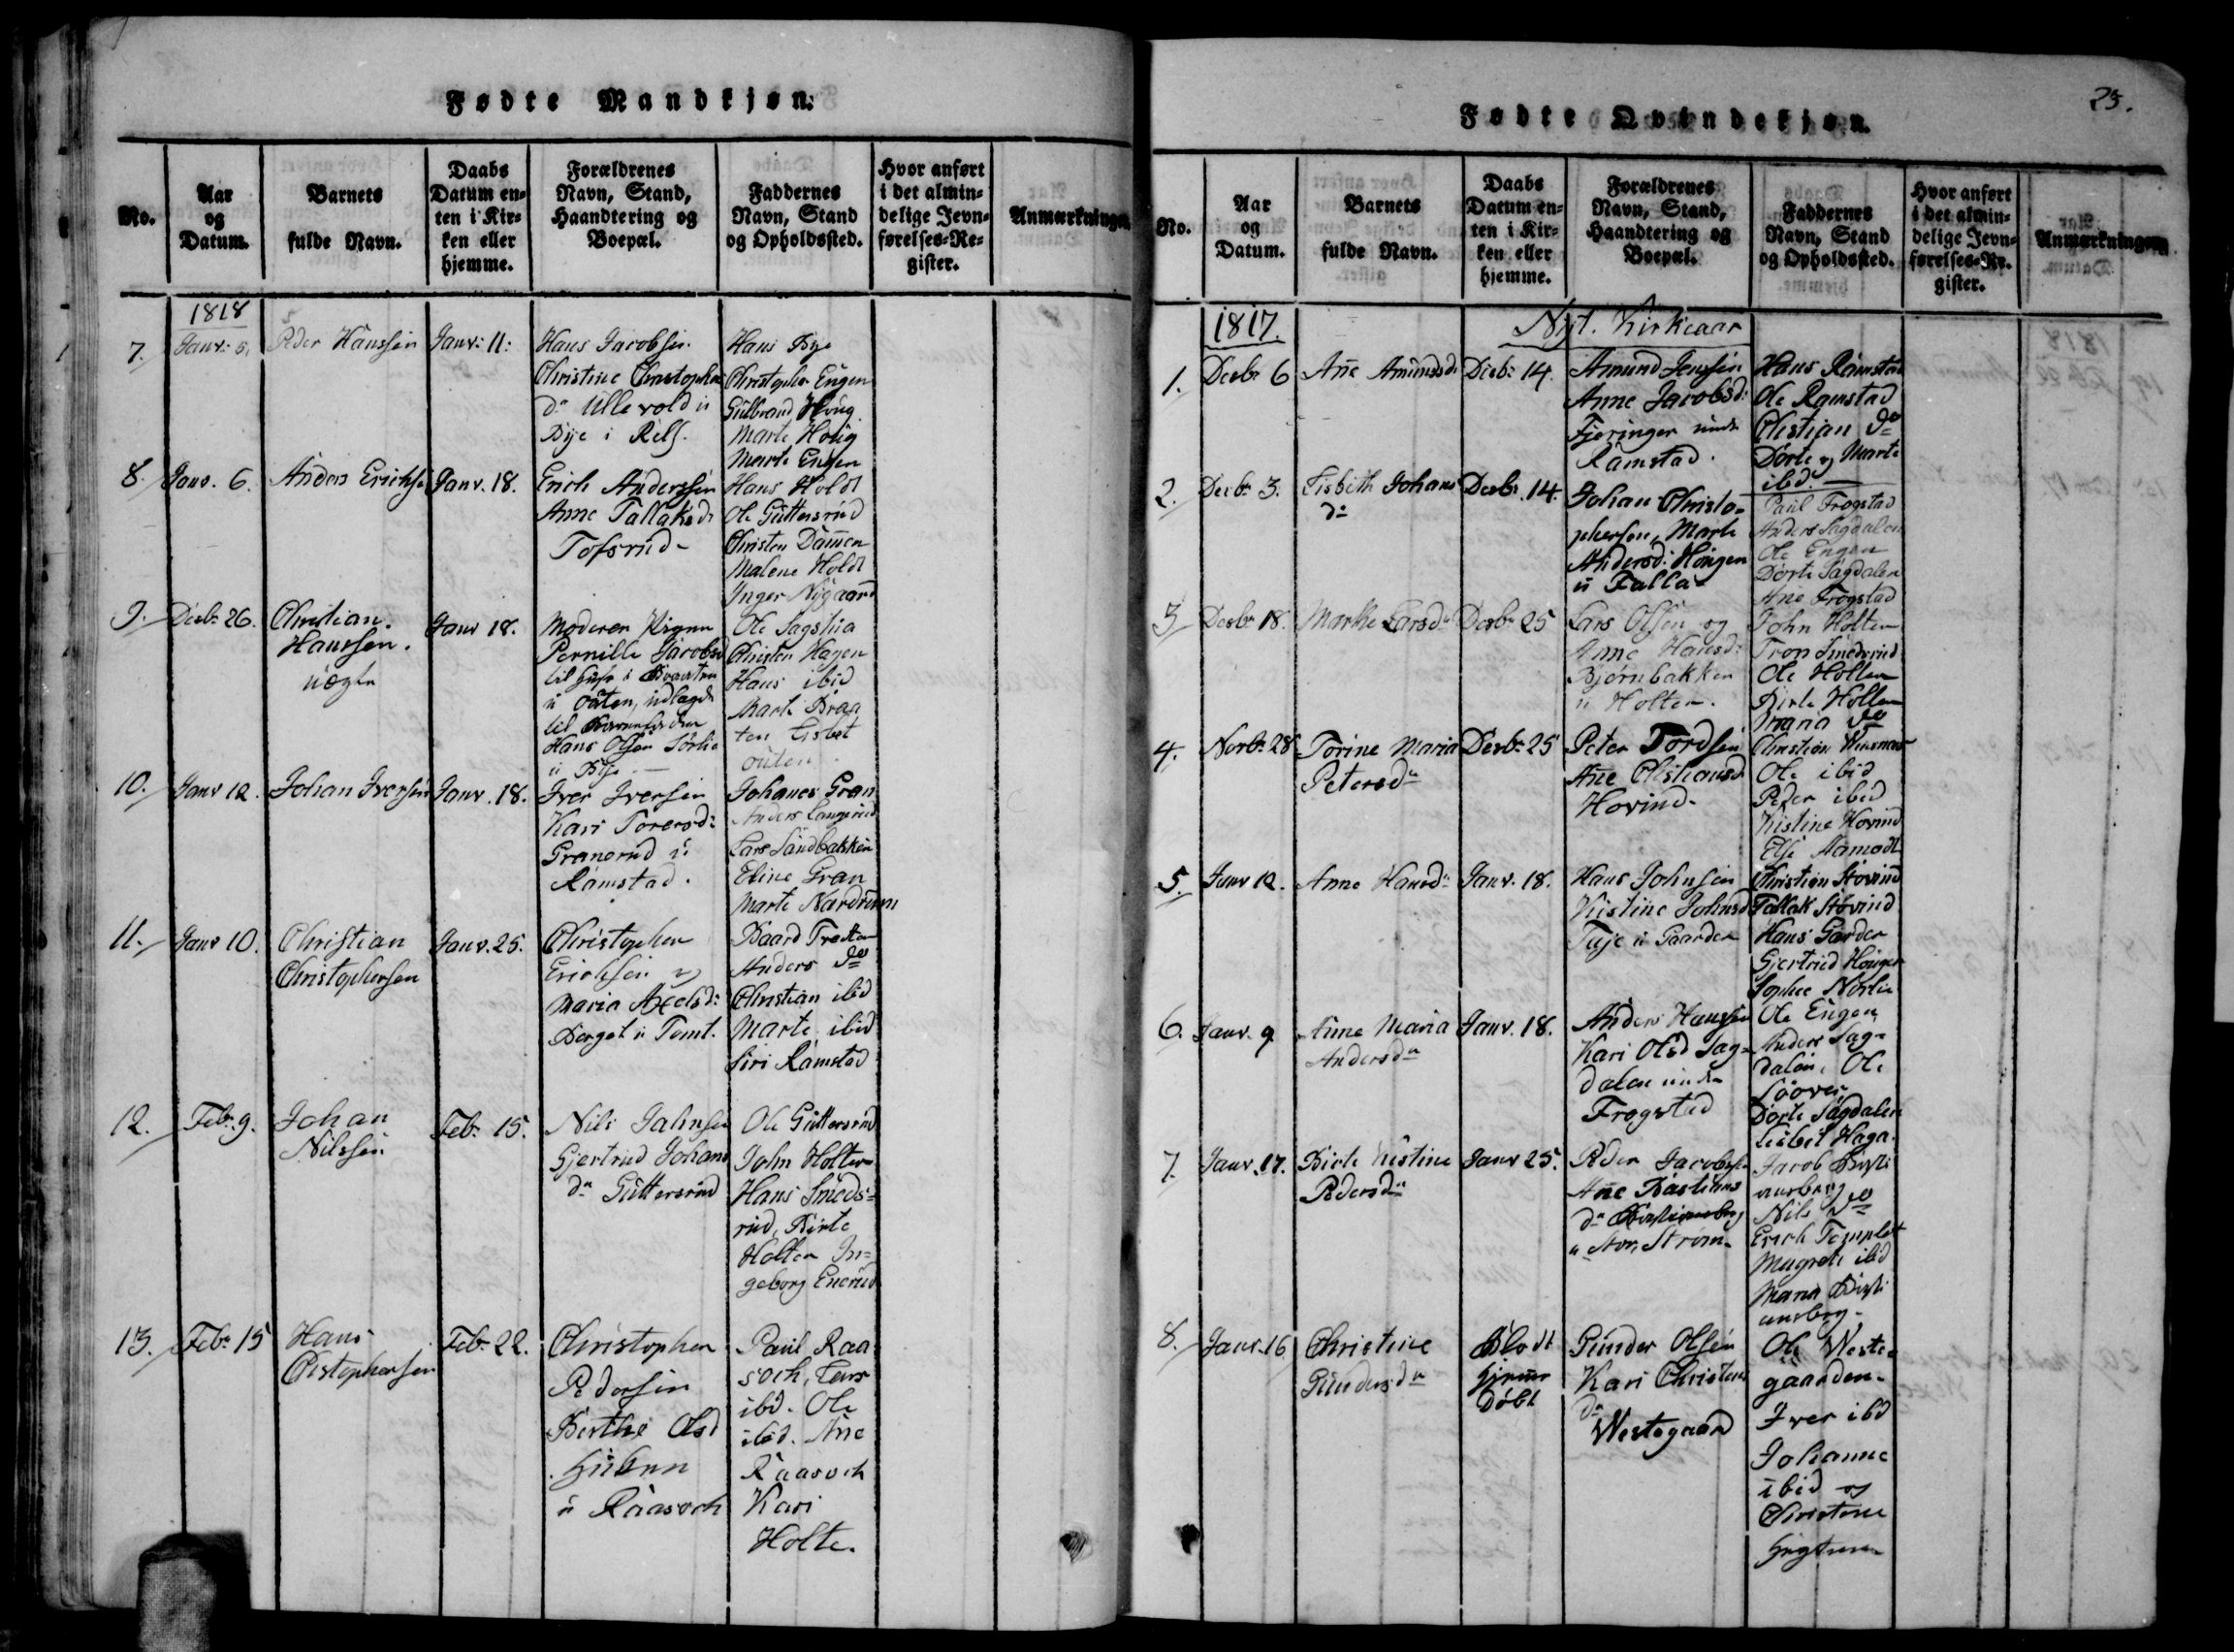 Fødte Mandkjøn.
No.
Aar
og
Datum.
Barnets
fulde Navn.
Daabs
Datum en-
ten i Kir-
ken eller
hjemme.
Forældrenes
Navn, Stand,
Haandtering og
Boepæl.
Faddernes
Navn, Stand
og Opholdssted.
Hvor anført
i det almin-
delige Jevn-
førelses-Re-
gister.
Anmærkninger
1818
7.
Janv: 5.
Peder Hanssen
Janv: 11:
Hans Jacobsen
Christine Christophers
dr Ullevold u
Bye i Rels.
Hans Bye
Christopher Engen
Gulbrand Houg
Marte Houg
Marte Engen
8.
Janv. 6.
Anders Erichs.
Janv. 18.
Erich Anderssen
Anne Tallaksdr
Tofsrud
Hans Holdt
Ole Guttersrud
Christen Damen
Malene Holdt
Inger Nigaard
9.
Decbr 26.
Christian
Hanssen.
uægte
Janv 18.
Moderen Pigen
Pernille Jacobsd
til huse i Braaten
u Outen, udlagde
til Barnefader
Hans Olsen Sørlie
u Bye
Ole Sagstua
Christen Hagen
Hans ibid
Marte Braa
ten Lisbet
outen
10.
Janv 12.
Johan Iversen
Janv. 18.
Iver Iversen
Kari Torersdr
Granerud u
Ramstad.
Johanes Gran
Anders Langerud
Lars Sandbakken
Eline Gran
Marte Nordrum
11.
Janv 10.
Christian
Christophersen
Janv. 25.
Christopher
Erichsen og
Maria Axelsd:
Berget u Tomt.
Baard Træten
Anders do
Christian ibid
Marte ibid
Siri Ramstad
12.
Febr 9.
Johan
Nilssen
Febr 15.
Nils Jahnsen
Gjertrud Johans
dr Guttersrud
Ole Guttersrud
John Holter
Hans Smeds-
rud, Birte
Holter In-
geborg Enerud
13.
Febr 15
Hans
Christophersen
Febr 22.
Christopher
Pedersen
Berthe Olsd
u Raasoch
Paul Raa
soch, Lars
ibd. Ole
ibid. Ane
Raasoch
Kari
Holte.
25.
Fødte Qvindekjøn.
No.
Aar
og
Datum.
Barnets
fulde Navn.
Daabs
Datum en-
ten i Kir-
ken eller
hjemme.
Forældrenes
Navn, Stand,
Haandtering og
Boepæl.
Faddernes
Navn, Stand
og Opholdssted.
Hvor anført
i det almin-
delige Jevn-
førelses-Re-
gister.
Anmærkninger
1817.
Nyt. Kirkeaar
1.
Decbr 6
Ane Amundsdr
Decbr 14.
Amund Jenssen
Anne Jacobsd:
Fjeringer under
Ramstad.
Hans Ramstad
Ole Ramstad
Christian do
Dorte og Marte
ibd.
2.
Decbr 3.
Lisbeth Johans
dr
Decbr 14.
Johan Christo-
phersen, Marte
Andersd: Haugen
u Falla
Paul Frogstad
Anders Sagdalen
Ole Engen
Dorte Sagdalen
Ane Frogstad
3.
Decbr 18.
Marthe Larsdr
Decbr 25
Lars Olsen og
Anne Hansd:
Bjørnbakken
u Holter.
John Holter
Tron Smedsrud
Ole Holter
Birte Holter
Maria do
4.
Novbr 28
Torine Maria
Petersdr
Decbr 25
Peter Tordsen
Ane Christiansd
Hovind
Christian
Ole ibid
Peder ibid
Kistine Hovind
Else Aamodt
5.
Janv 12.
Anne Hansdr
Janv. 18.
Hans Johnsen
Kistine Johnsd
Tuje u Gaarder
Christian Stovind
Tallak Stovind
Hans Garder
Gjertrud Haugen
Sophie Norlie
6.
Janv. 9
Anne Maria
Andersdr
Janv. 18.
Anders Hanssen
Kari Olsd Sag-
dalen under
Frogstad
Ole Engen
Anders Sag-
dalen, Ole
Dorte Sagdalen
Lisbet Haga.
7.
Janv. 17.
Birte Kistine
Pedersdr
Janv 25.
Peder Jacobsen
Ane Bastians
dr
u Stor Strøm
Jacob
Nils do
Erich Templet
Magrete ibid
Maria
8.
Janv. 16.
Christine
Gundersdr
hjemme
døbt
Gunder Olsen
Kari Christens
dr
Westegaard
Ole Weste-
gaarden.
Iver ibd
Johanne
ibid og
Christine